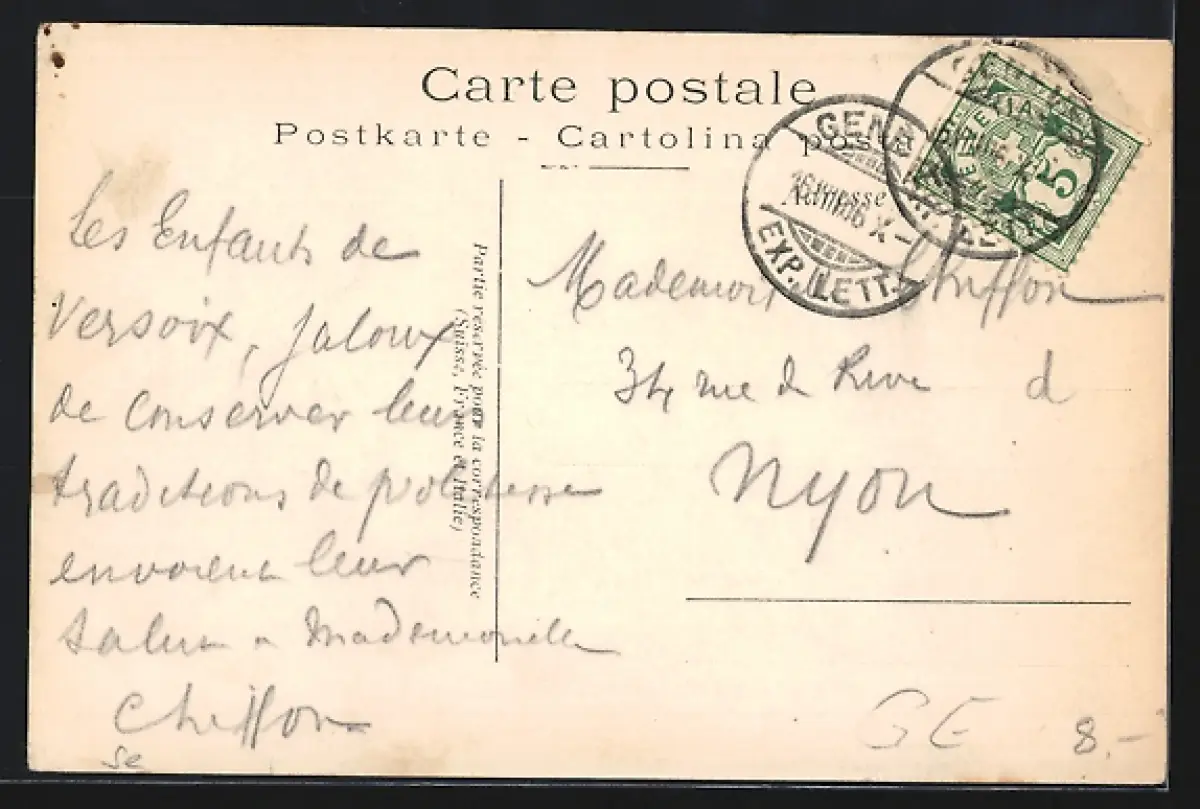 Carte postale
Postkarte - Cartolina posta
Les Enfants de
Versoix, jaloux
de conserver leur
traditions de politesse
envoient leur
salut à Mademoiselle
Chiffon
Partie réservée pour la correspondance
(Suisse, France et Italie)
Adresse
GENÈ
EXP. LETT.
5
Mademois Chiffon
34 rue de Rive d
Nyon
GE 8.-
se